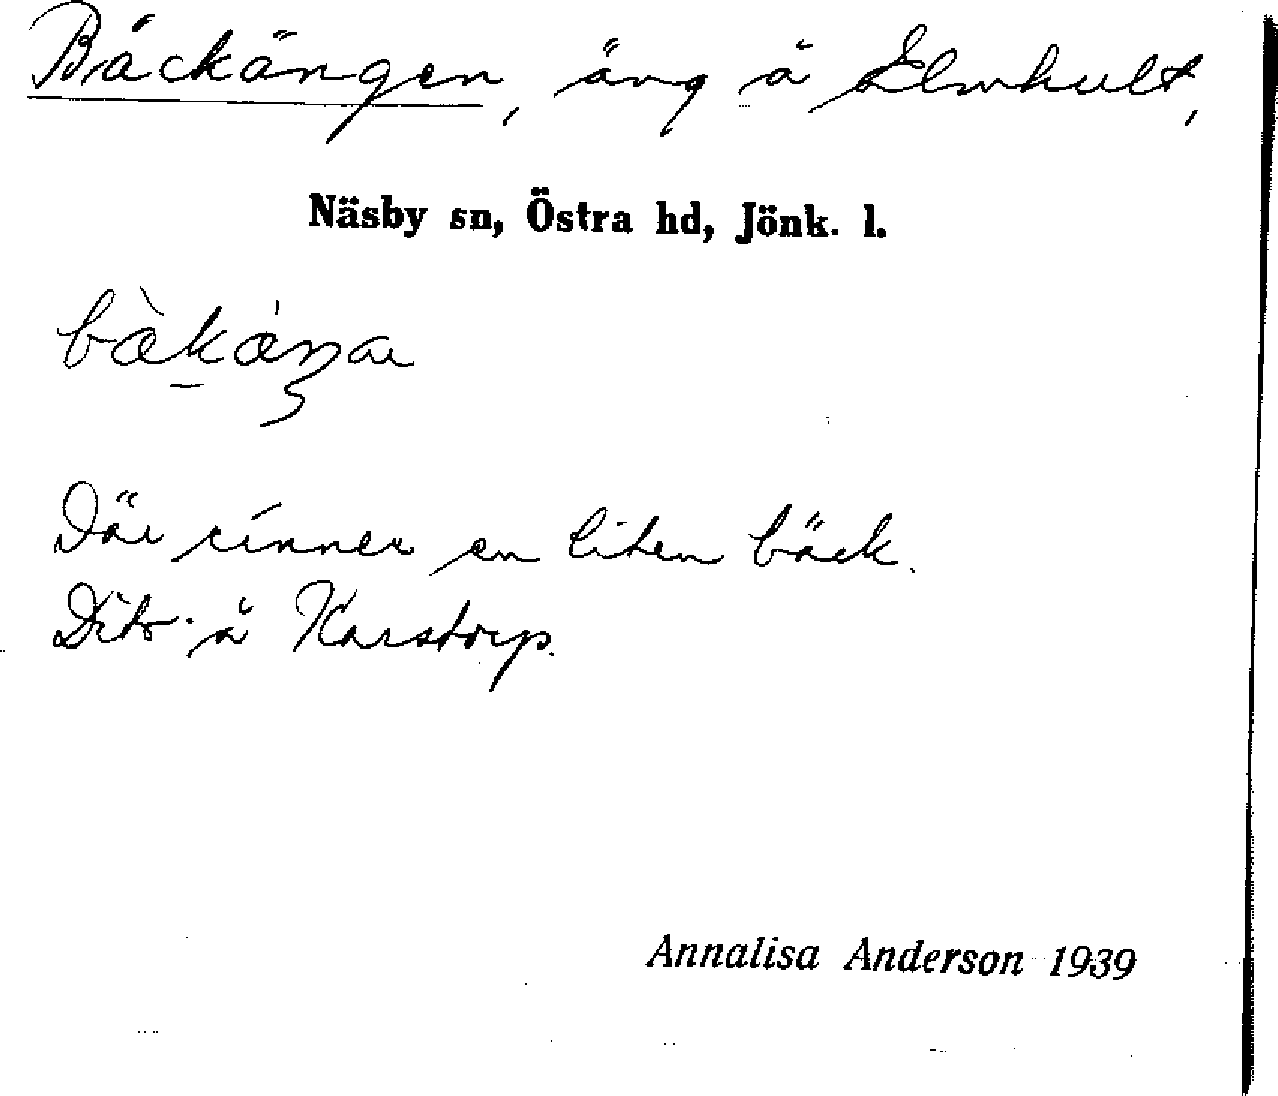 Bäckängen, äng å Elmhult,
Näsby sn, Östra hd, Jönk. l.
bækæŋa
Där rinner en liten bäck.
Dito å Karstorp.
Annalisa Anderson 1939